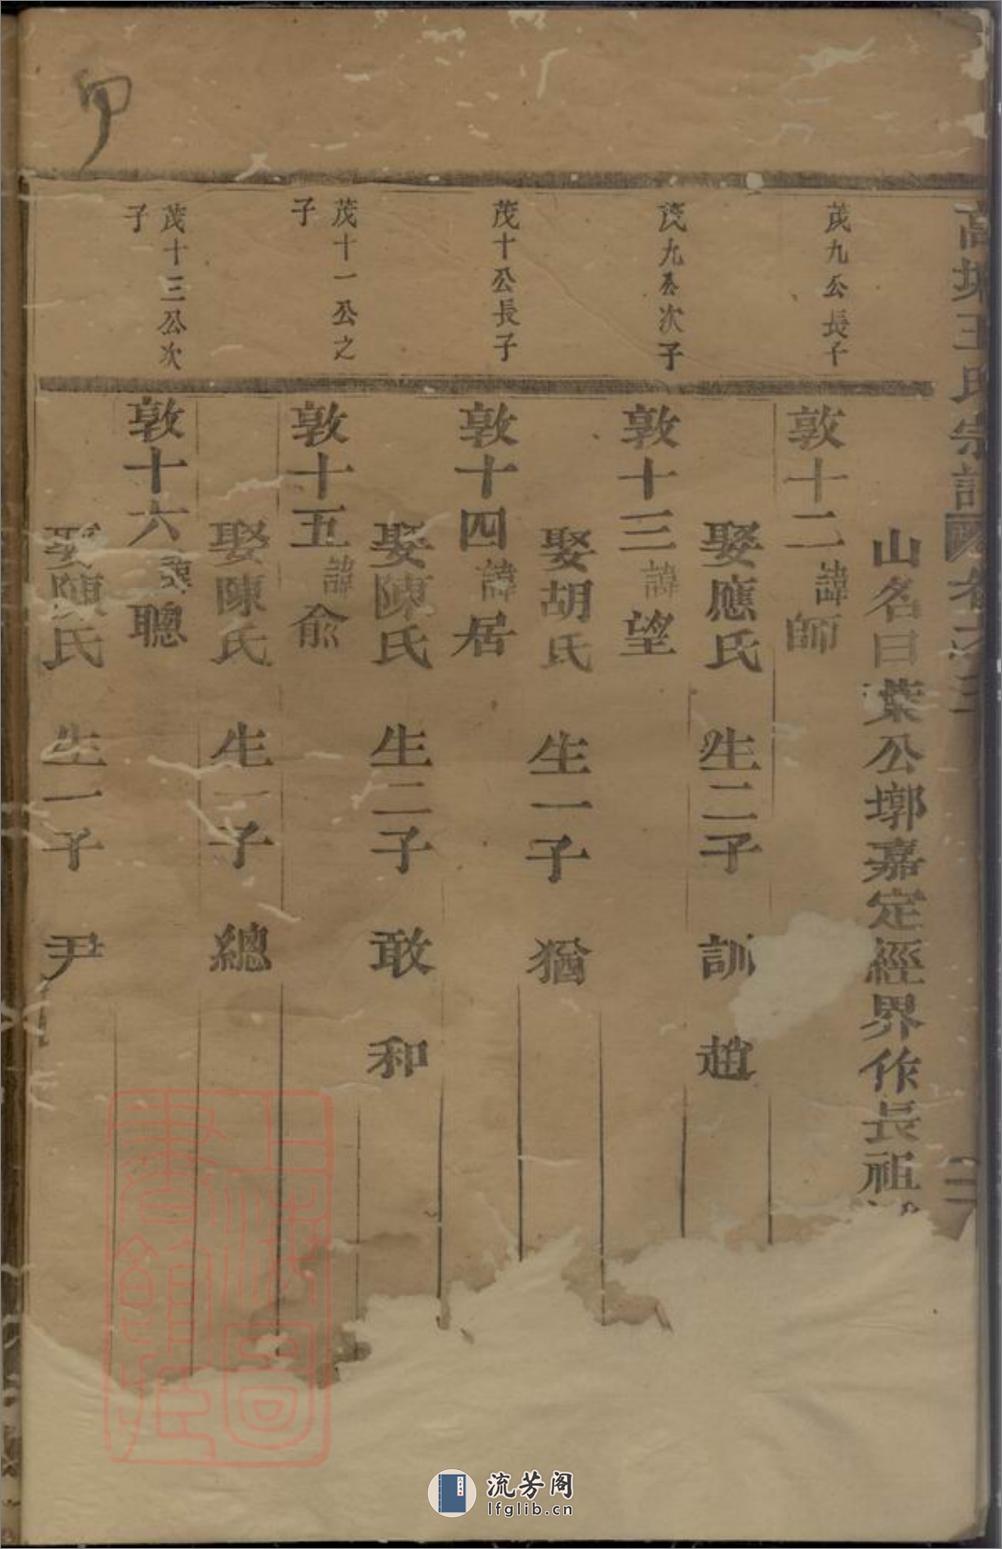 王氏宗譜
卷之三
二
山名曰葉公墎嘉定經界作長祖
茂九公長子
敦十二諱師
娶應氏 生二子 訓 趙
茂九公次子
敦十三諱望
娶胡氏 生一子 猶
茂十公長子
敦十四諱居
娶陳氏 生二子 敢 和
茂十一公之
子
敦十五諱俞
娶陳氏 生一子 總
茂十三公次
子
敦十六諱聰
娶陳氏 生一子 尹
上海圖
書館藏
流芳阁
lfglib.cn